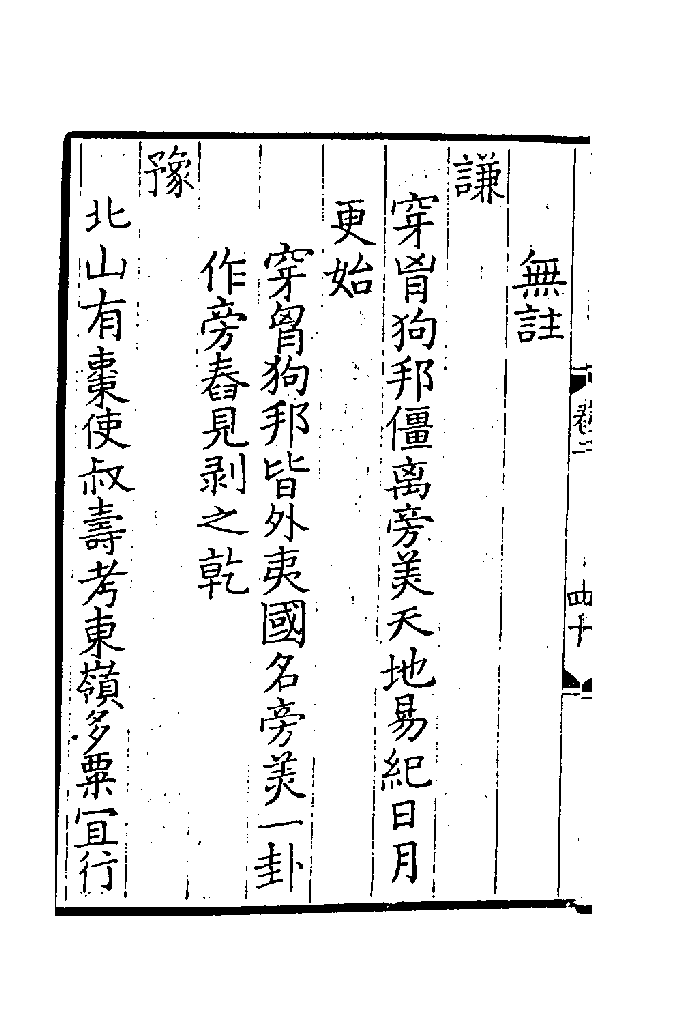 無註
謙
穿胷狗邦僵离旁美天地易紀日月
更始
穿胷狗邦皆外夷國名旁美一卦
作旁舂見剥之乾
豫
北山有棗使叔壽考東嶺多粟宜行
卷二
四十